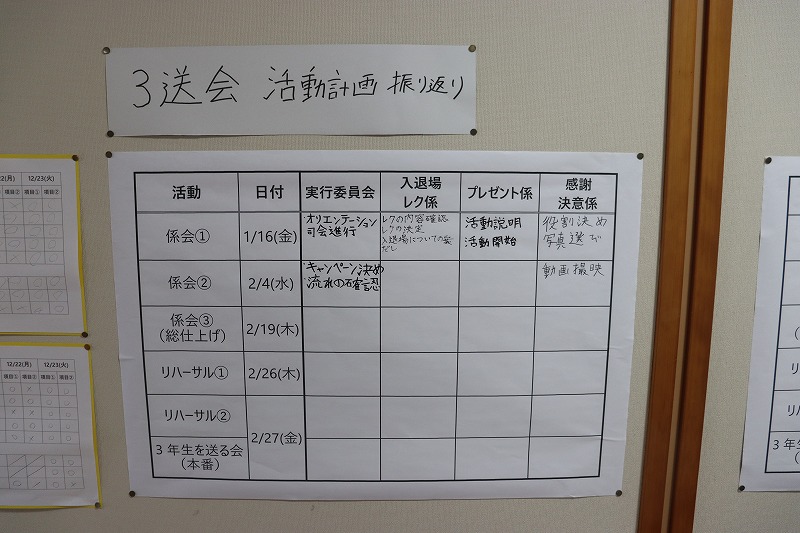 3送会 活動計画 振り返り
活動 日付 実行委員会 入退場 レク係 プレゼント係 感謝 決意係
係会① 1/16(金)
・オリエンテーション
司会進行
レクの内容確認
レクの決定
入退場についての案
だし
活動説明
活動開始
役割決め
写真選び
係会② 2/4(水)
・キャンペーン決め
・流れの確認
動画撮映
係会③
(総仕上げ)
2/19(木)
リハーサル① 2/26(木)
リハーサル②
2/27(金)
3年生を送る会
(本番)
12/23(火)
項目② 項目① 項目②
12/22(月) 12/23(火)
項目① 項目② 項目① 項目②